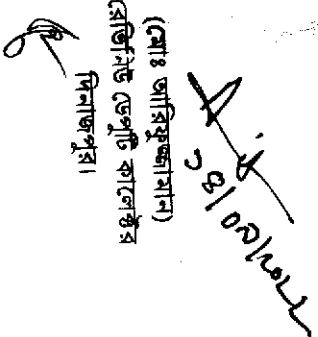 ১৪/০২/২০২২
(মোঃ আরিফুজ্জামান)
রেভিনিউ ডেপুটি কালেক্টর
দিনাজপুর।